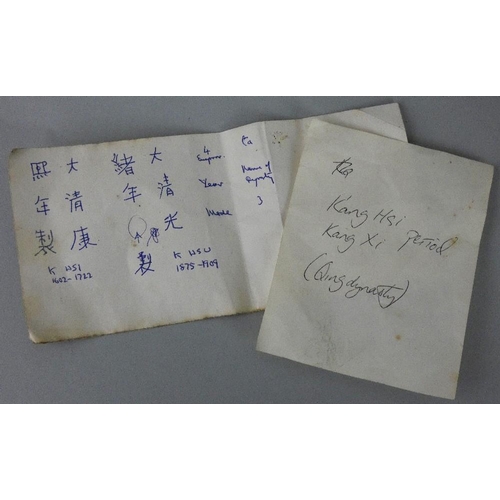 熙 大
年 清
製 康
K HSI
1662-1722
緒 大
年 清
光
製
K HSU
1875-1909
4
Emperor
Year
Made
Name of
Dynasty
3
Kang Hsi
Kang Xi Period
(Qing dynasty)